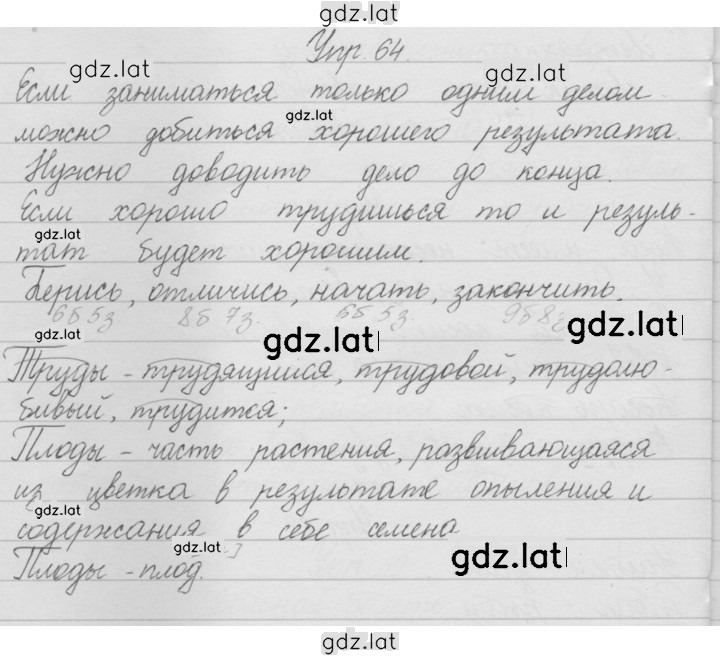 gdz.lat
Упр. 64.
gdz.lat
gdz.lat
Если заниматься только одним делом
gdz.lat
можно добиться хорошего результата.
Нужно доводить дело до конца.
Если хорошо трудишься то и резуль-
gdz.lat
тат будет хорошим.
Берись, отличись, начать, закончить.
6б 5з 8б 7з. 6б 5з. 9б 8з
gdz.lat
gdz.lat
gdz.lat
Труды - трудящийся, трудовой, трудолю-
бивый, трудится;
Плоды - часть растения, развивающаяся
из цветка в результате опыления и
gdz.lat
содержания в себе семена
gdz.lat
gdz.lat
Плоды - плод.
gdz.lat